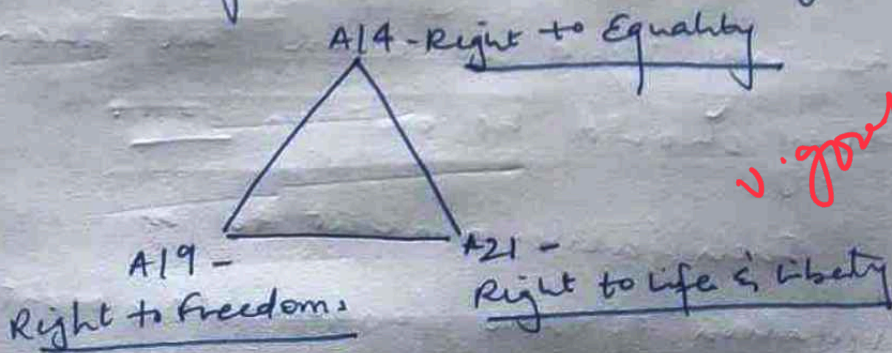 A14 - Right to Equality
v. good
A19 -
Right to Freedoms
A21 -
Right to life & liberty